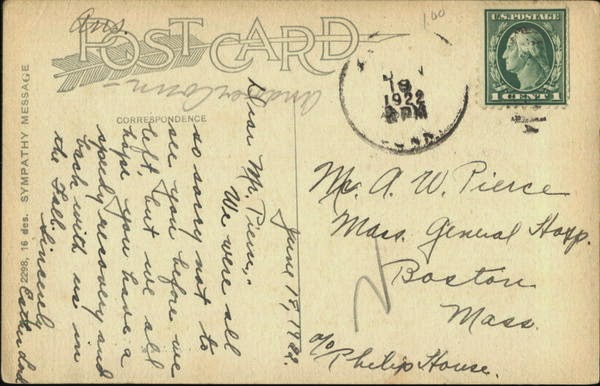 Ans.
POST CARD
1.00
Andover Conn-
CORRESPONDENCE
2298, 16 des. SYMPATHY MESSAGE
June 18, 1922.
Dear Mr. Pierce,
We were all
so sorry not to
see you before we
left, but we all
hope you have a
speedy recovery and
back with us in
the Fall.
Sincerely
Esther
19
1922
PM
CONN.
U.S. POSTAGE
1 CENT 1
Mr. A. W. Pierce
Mass. General Hosp.
Boston
Mass.
c/o Philip House.